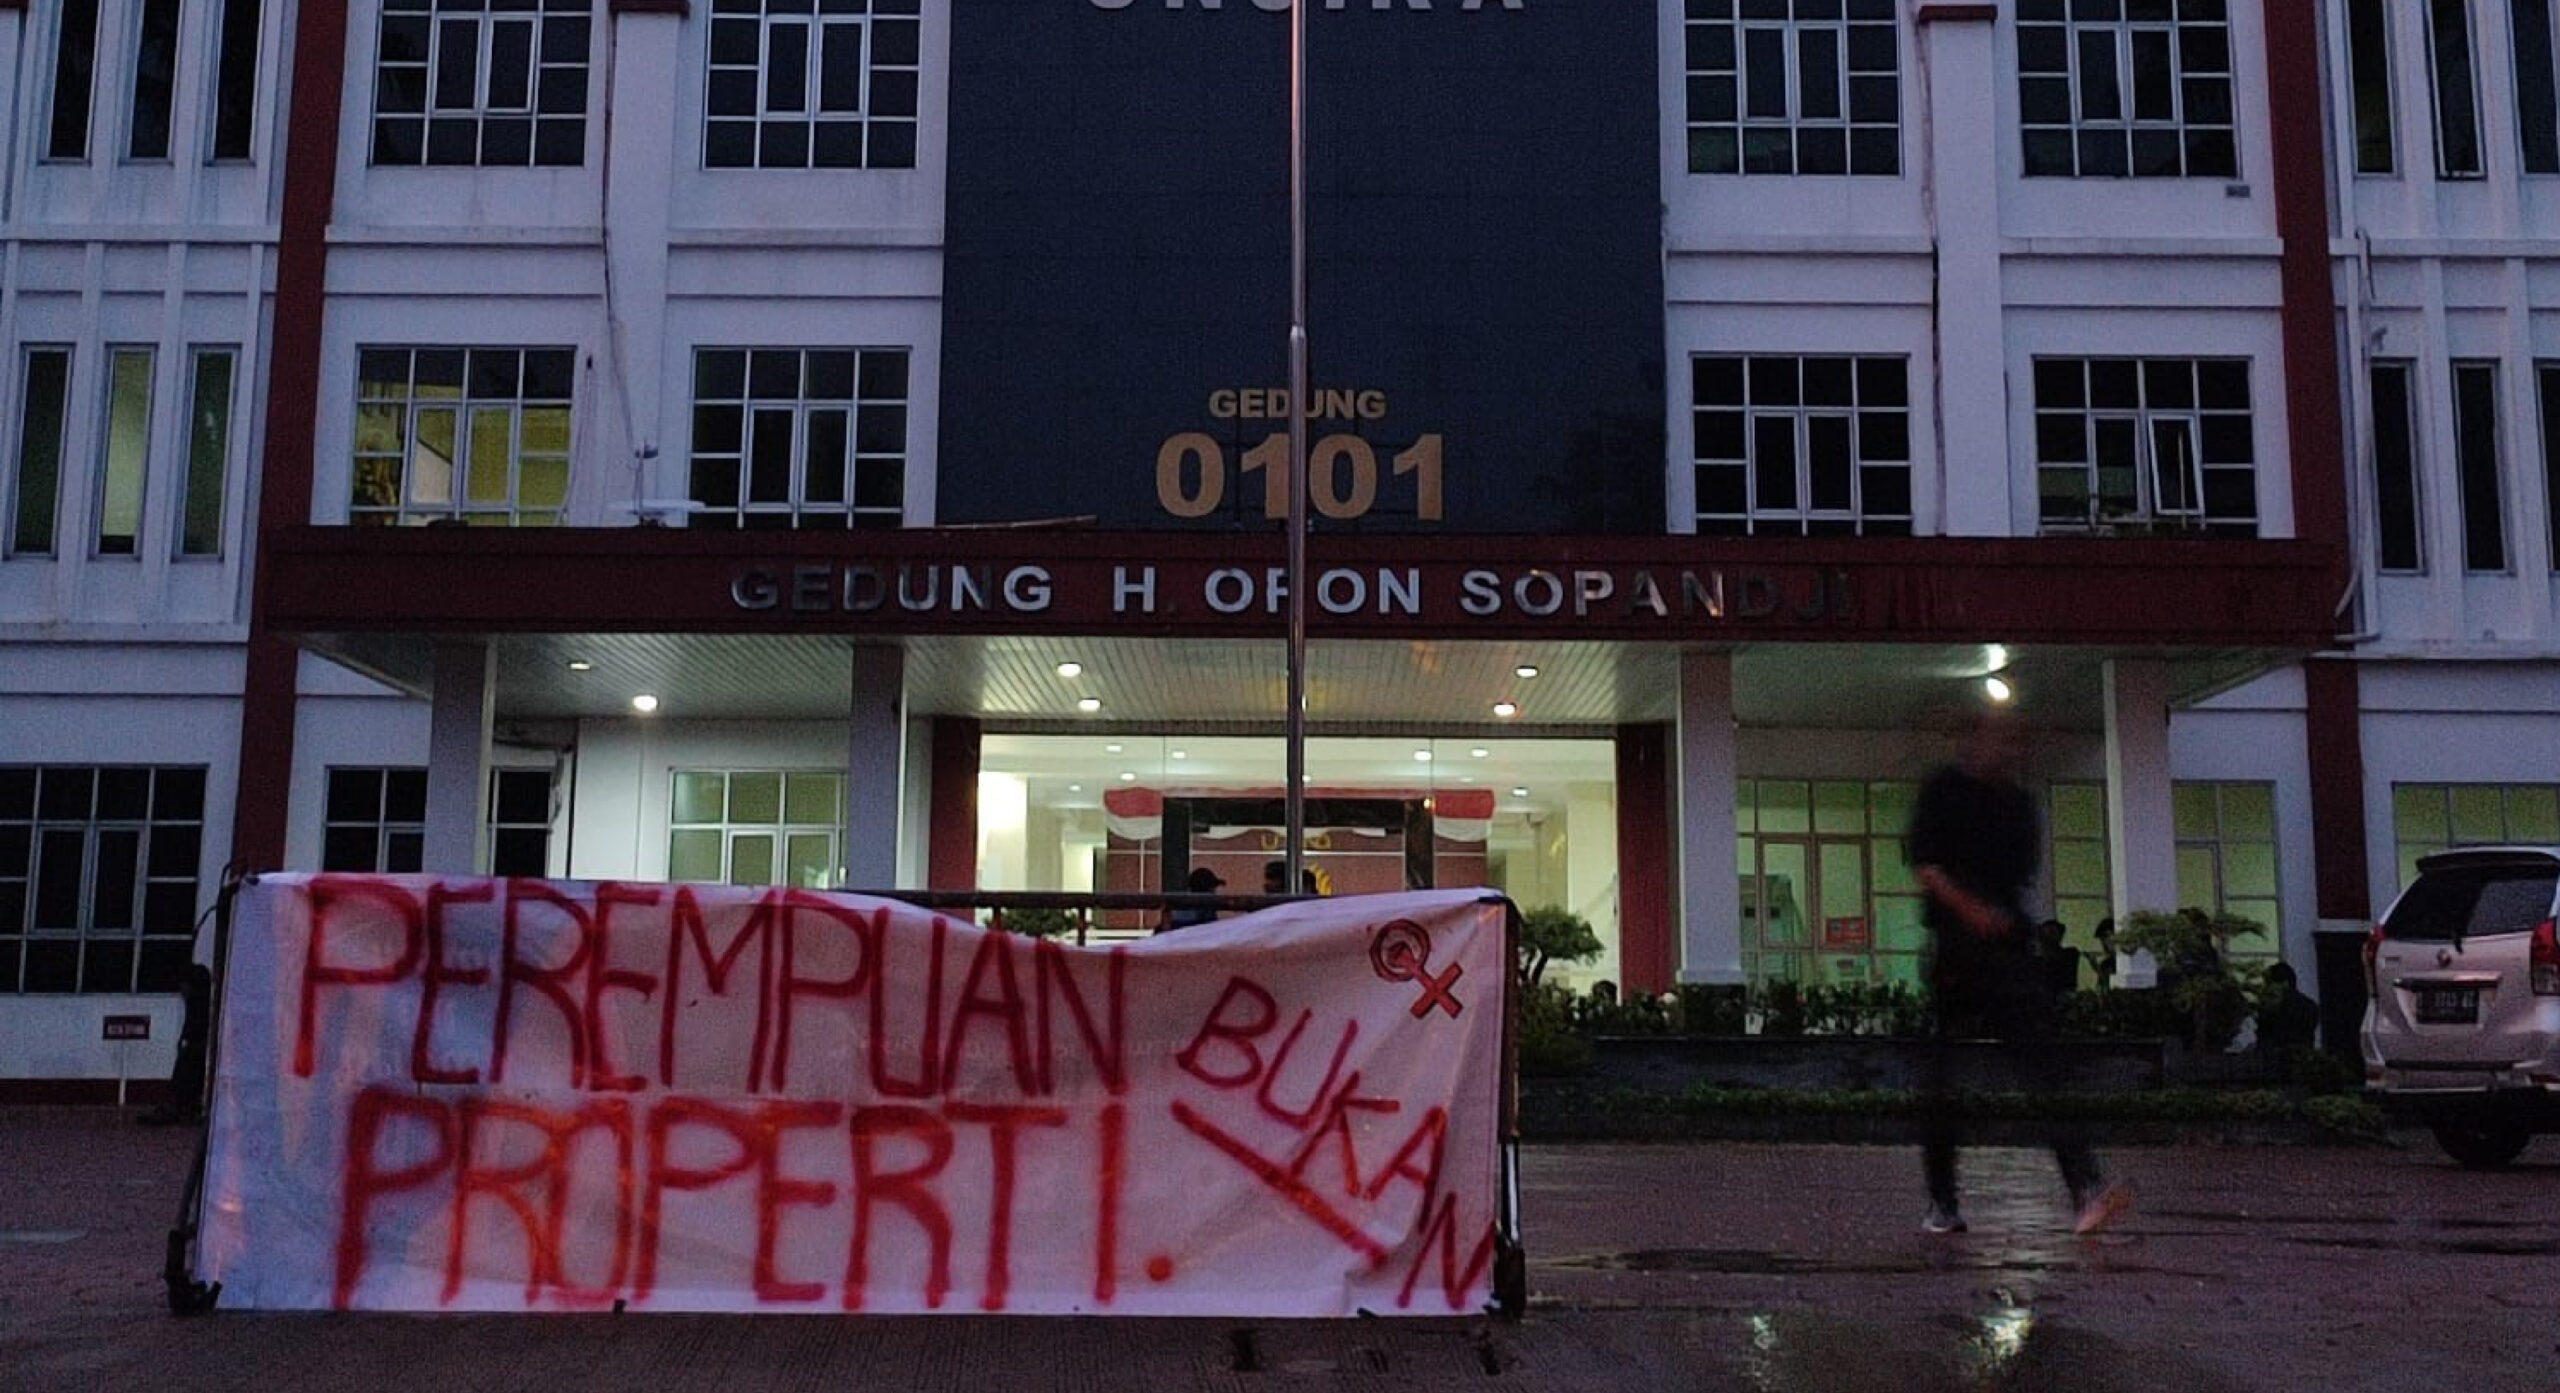 UNSIKA
GEDUNG
0101
GEDUNG H. OPON SOPANDJI
PEREMPUAN
BUKAN
PROPERTI.